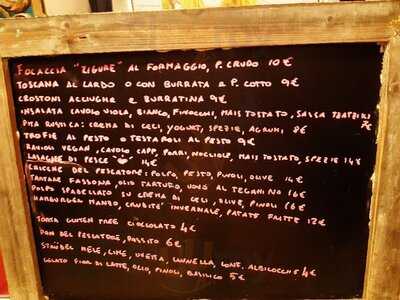 FOCACCIA "ZIGURE" AL FORMAGGIO, P. CRUDO 10€
TOSCANA AL LARDO O CON BURRATA E P. COTTO 9€
CROSTONI ACCIUGHE E BURRATINA 9€
INSALATA CAVOLO VIOLA, BIANCO, FINOCCHI, MAIS TOSTATO, SALSA
7€
PITA RUSTICA: CREMA DI CECI, YOGURT, SPEZIE, AGRUMI 8€
TROFIE AL PESTO O TESTAROLI AL PESTO 9€
RAVIOLI VEGAN, CAVOLO CAPP, PORRI, NOCCIOLE, MAIS TOSTATO, SPEZIE 14€
LASAGNE DI PESCE 14€
CHICCHE DEL PESCATORE: POLPO, PESTO, PINOLI, OLIVE 14€
TARTARE FASSONA, OLIO TARTUFO, UOVO AL TEGAMINO 16€
POLPO SPADELLATO SU CREMA DI CECI, OLIVE, PINOLI 16€
HAMBURGER MANZO, INVERNALE, PATATE FRITTE 12€
TORTA GLUTEN FREE CIOCCOLATO 4€
PAN DEL PESCATORE, PASSITO 6€
STRÜDEL MELE, LIME, UVETTA, CANNELLA, CONF. ALBICOCCHE 4€
GELATO FIOR DI LATTE, OLIO, PINOLI, BASILICO 5€